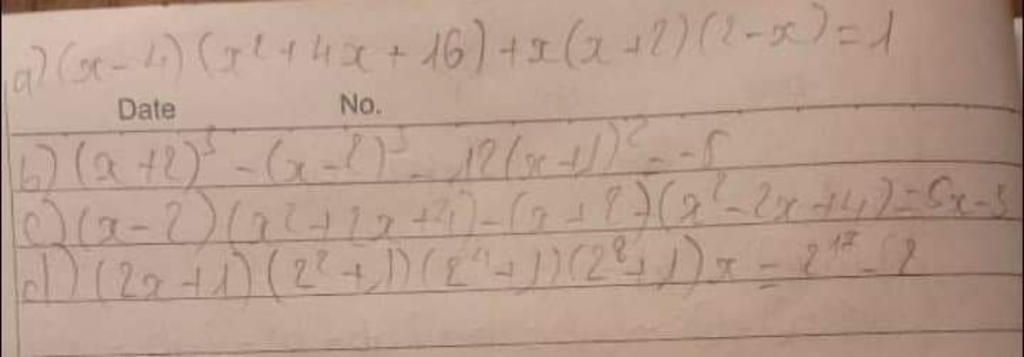 a) (x-4)(x²+4x+16)+x(x+2)(2-x)=1
Date No.
b) (x+2)³-(x-2)³-12(x+1)²=-5
c) (x-2)(x²+2x+4)-(x+2)(x²-2x+4)=5x-3
d) (2x+1)(2²+1)(2⁴+1)(2⁸+1)x=2¹⁷-2